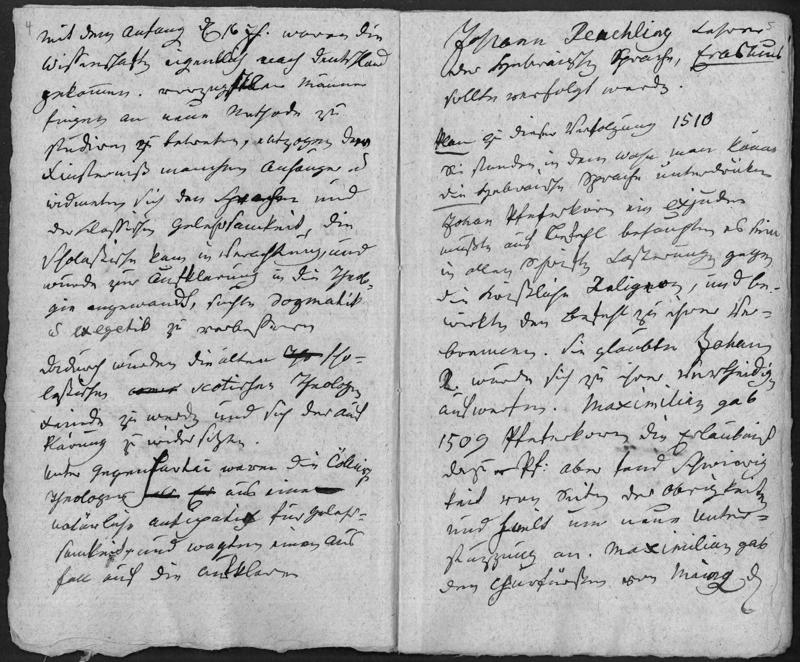 4
mit dem Anfang des 16 Jh. waren die
Wissenschaften eigentlich nach Deutschland
gekommen. vorzügliche Männer
fingen an neue Methode zu
studiren zu betreten, entzogen dem
Finsterniß manchen Anhänger u
widmeten sich den Sprachen und
der klassischen Gelehrsamkeit, die
Scholastische kam in Verachtung und
wurde zur Aufklärung in die Theolo-
gie angewand, suchte Dogmatik
u Exegetik zu verbessern
Dadurch wurden die alten Scho-
lastischen scotischen Theologen
Feinde zu werden und sich der Auf
klärung zu widersetzen.
Unter Gegenparthei waren die Cöllnisch
Theologen aus einer
natürliche Antipathie für Gelehr-
samkeit und wagten einen Aus
fall auf die Aufklärer
5
Johann Reuchling Lehrer
der Hebräischen Sprache, Erasmus
sollte verfolgt werde.
Plan zu dieser Verfolgung 1510
Sie stunden in dem Wahn man könne
die Hebräische Sprache unterdrüken
Johan Pfeferkorn ein exjude
mußte auf Befehl behaupten es seien
in allen Schriften Lästerungen gegen
die Kristliche Religion, und be-
wirkte den Befehl zu ihrer Ver-
brennen. Sie glaubten Johann
R. würde sich zu ihrer Vertheidig
aufwerfen. Maximilian gab
1509 Pfeferkorn die Erlaubniß
dazu Pf: aber fand Schwierig
keit von Seiten der Obrigkeit
und hielt um neue Unter-
stüzzung an. Maximilian gab
dem Churfürsten von Mainz d